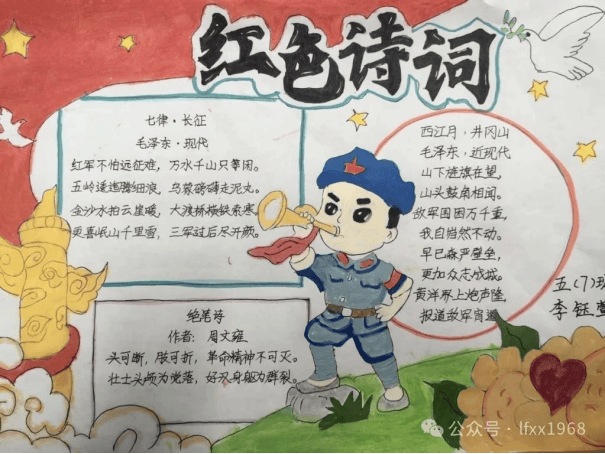 红色诗词
七律·长征
毛泽东·现代
红军不怕远征难，万水千山只等闲。
五岭逶迤腾细浪，乌蒙磅礴走泥丸。
金沙水拍云崖暖，大渡桥横铁索寒。
更喜岷山千里雪，三军过后尽开颜。
绝笔诗
作者：周文雍
头可断，肢可折，革命精神不可灭。
壮士头颅为党落，好汉身躯为群裂。
西江月·井冈山
毛泽东·近现代
山下旌旗在望，
山头鼓角相闻。
敌军围困万千重，
我自岿然不动。
早已森严壁垒，
更加众志成城。
黄洋界上炮声隆，
报道敌军宵遁
五(7)班
李钰
公众号·lfxx1968